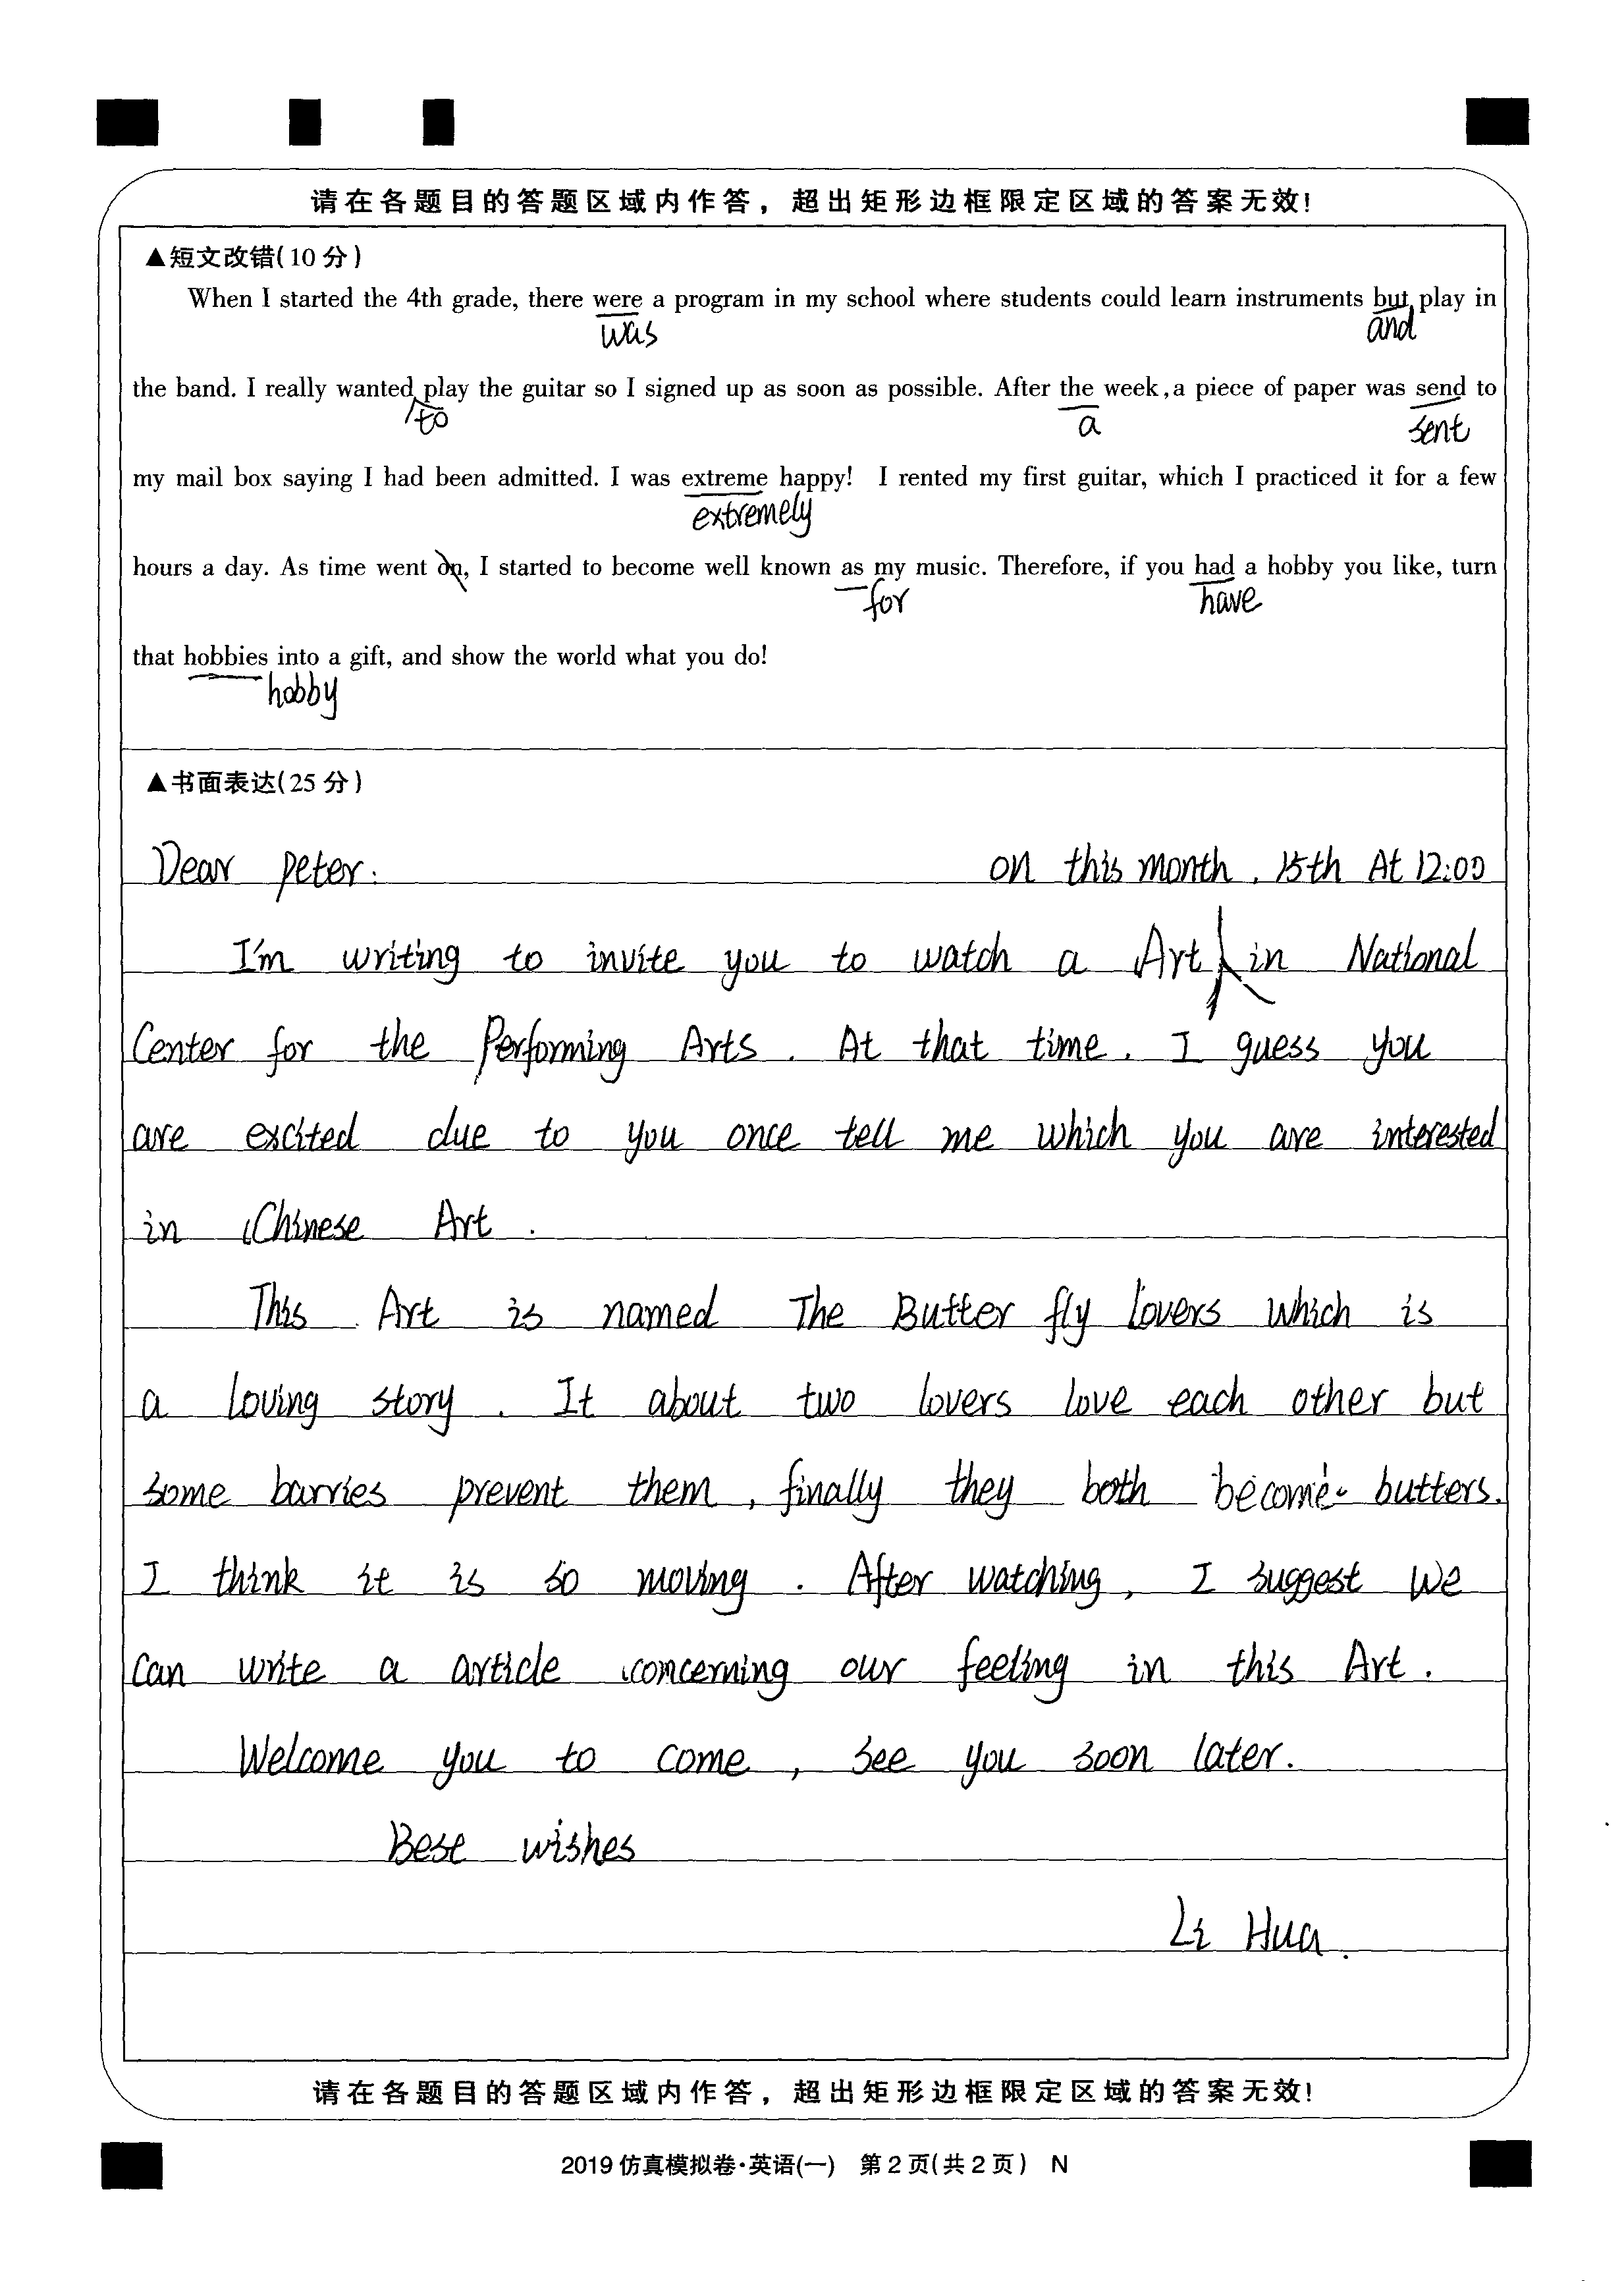 请在各题目的答题区域内作答，超出矩形边框限定区域的答案无效！
▲短文改错(10分)
When I started the 4th grade, there were a program in my school where students could learn instruments but play in
was and
the band. I really wanted play the guitar so I signed up as soon as possible. After the week, a piece of paper was send to
to a sent
my mail box saying I had been admitted. I was extreme happy! I rented my first guitar, which I practiced it for a few
extremely
hours a day. As time went on, I started to become well known as my music. Therefore, if you had a hobby you like, turn
for have
that hobbies into a gift, and show the world what you do!
hobby
▲书面表达(25分)
Dear Peter: on this month, 15th At 12:00
I'm writing to invite you to watch a Art in National
Center for the Performing Arts. At that time, I guess you
are excited due to you once tell me which you are interested
in Chinese Art.
This Art is named The Butter fly lovers which is
a loving story. It about two lovers love each other but
some barries prevent them, finally they both become butters.
I think it is so moving. After watching, I suggest we
can write a article concerning our feeling in this Art.
Welcome you to come, see you soon later.
Best wishes
Li Hua.
请在各题目的答题区域内作答，超出矩形边框限定区域的答案无效！
2019仿真模拟卷·英语(一) 第2页(共2页) N